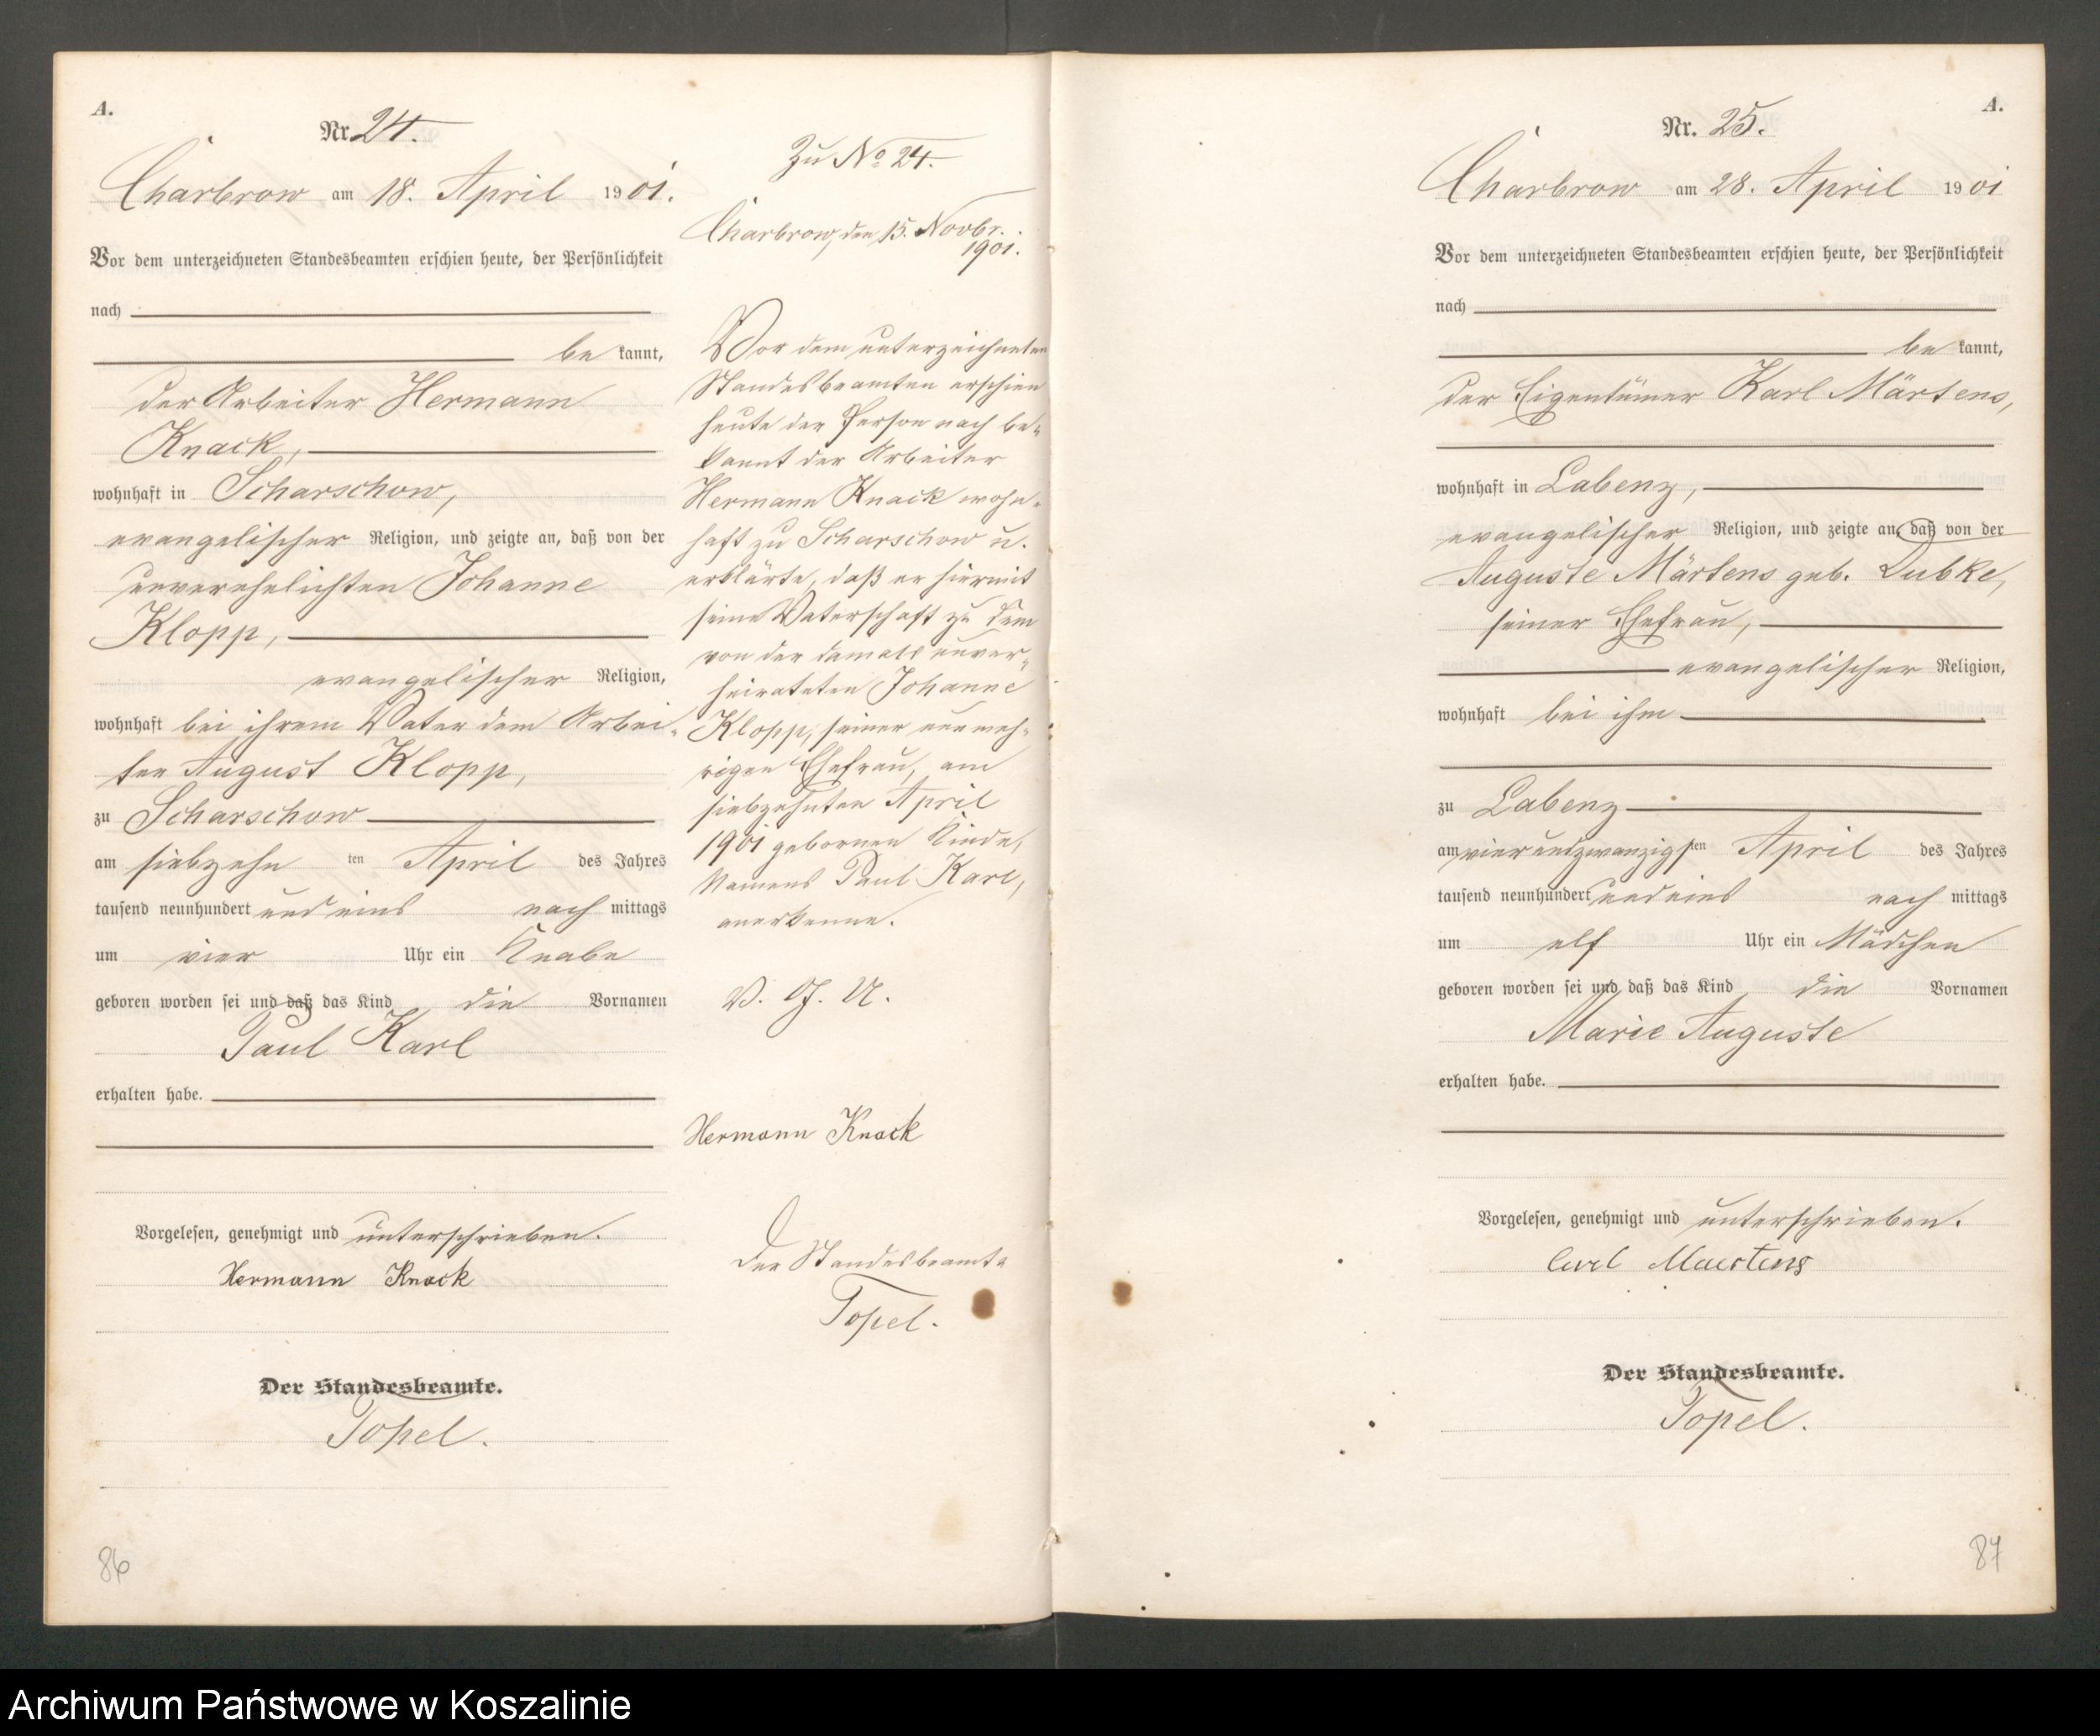 A.
Nr. 24.
Charbrow am 18. April 1901.
Vor dem unterzeichneten Standesbeamten erschien heute, der Persönlichkeit
nach
be kannt,
der Arbeiter Hermann
Knack,
wohnhaft in Scharschow,
evangelischer Religion, und zeigte an, daß von der
unverehelichten Johanne
Klopp,
evangelischer Religion,
wohnhaft bei ihrem Vater dem Arbei-
ter August Klopp,
zu Scharschow
am siebzehn ten April des Jahres
tausend neunhundert und eins nach mittags
um vier Uhr ein Knabe
geboren worden sei und daß das Kind die Vornamen
Paul Karl
erhalten habe.
Vorgelesen, genehmigt und unterschrieben.
Hermann Knack
Der Standesbeamte.
Topel.
86
Zu No 24.
Charbrow, den 15. Novbr.
1901.
Vor dem unterzeichneten
Standesbeamten erschien
heute der Person nach be-
kannt der Arbeiter
Hermann Knack wohn-
haft zu Scharschow u.
erklärte, daß er hiermit
seine Vaterschaft zu dem
von der damals unver-
heirateten Johanne
Klopp, seiner nunmeh-
rigen Ehefrau, am
siebzehnten April
1901 gebornen Kinde,
Namens Paul Karl,
anerkenne.
V. G. U.
Hermann Knack
Der Standesbeamte
Topel.
A.
Nr. 25.
Charbrow am 28. April 1901
Vor dem unterzeichneten Standesbeamten erschien heute, der Persönlichkeit
nach
be kannt,
der Eigentümer Karl Märtens,
wohnhaft in Labenz,
evangelischer Religion, und zeigte an, daß von der
Auguste Märtens geb. Lubke,
seiner Ehefrau,
evangelischer Religion,
wohnhaft bei ihm
zu Labenz
am vierundzwanzigsten April des Jahres
tausend neunhundert und eins nach mittags
um elf Uhr ein Mädchen
geboren worden sei und daß das Kind die Vornamen
Marie Auguste
erhalten habe.
Vorgelesen, genehmigt und unterschrieben.
Carl Maertens
Der Standesbeamte.
Topel.
87
Archiwum Państwowe w Koszalinie